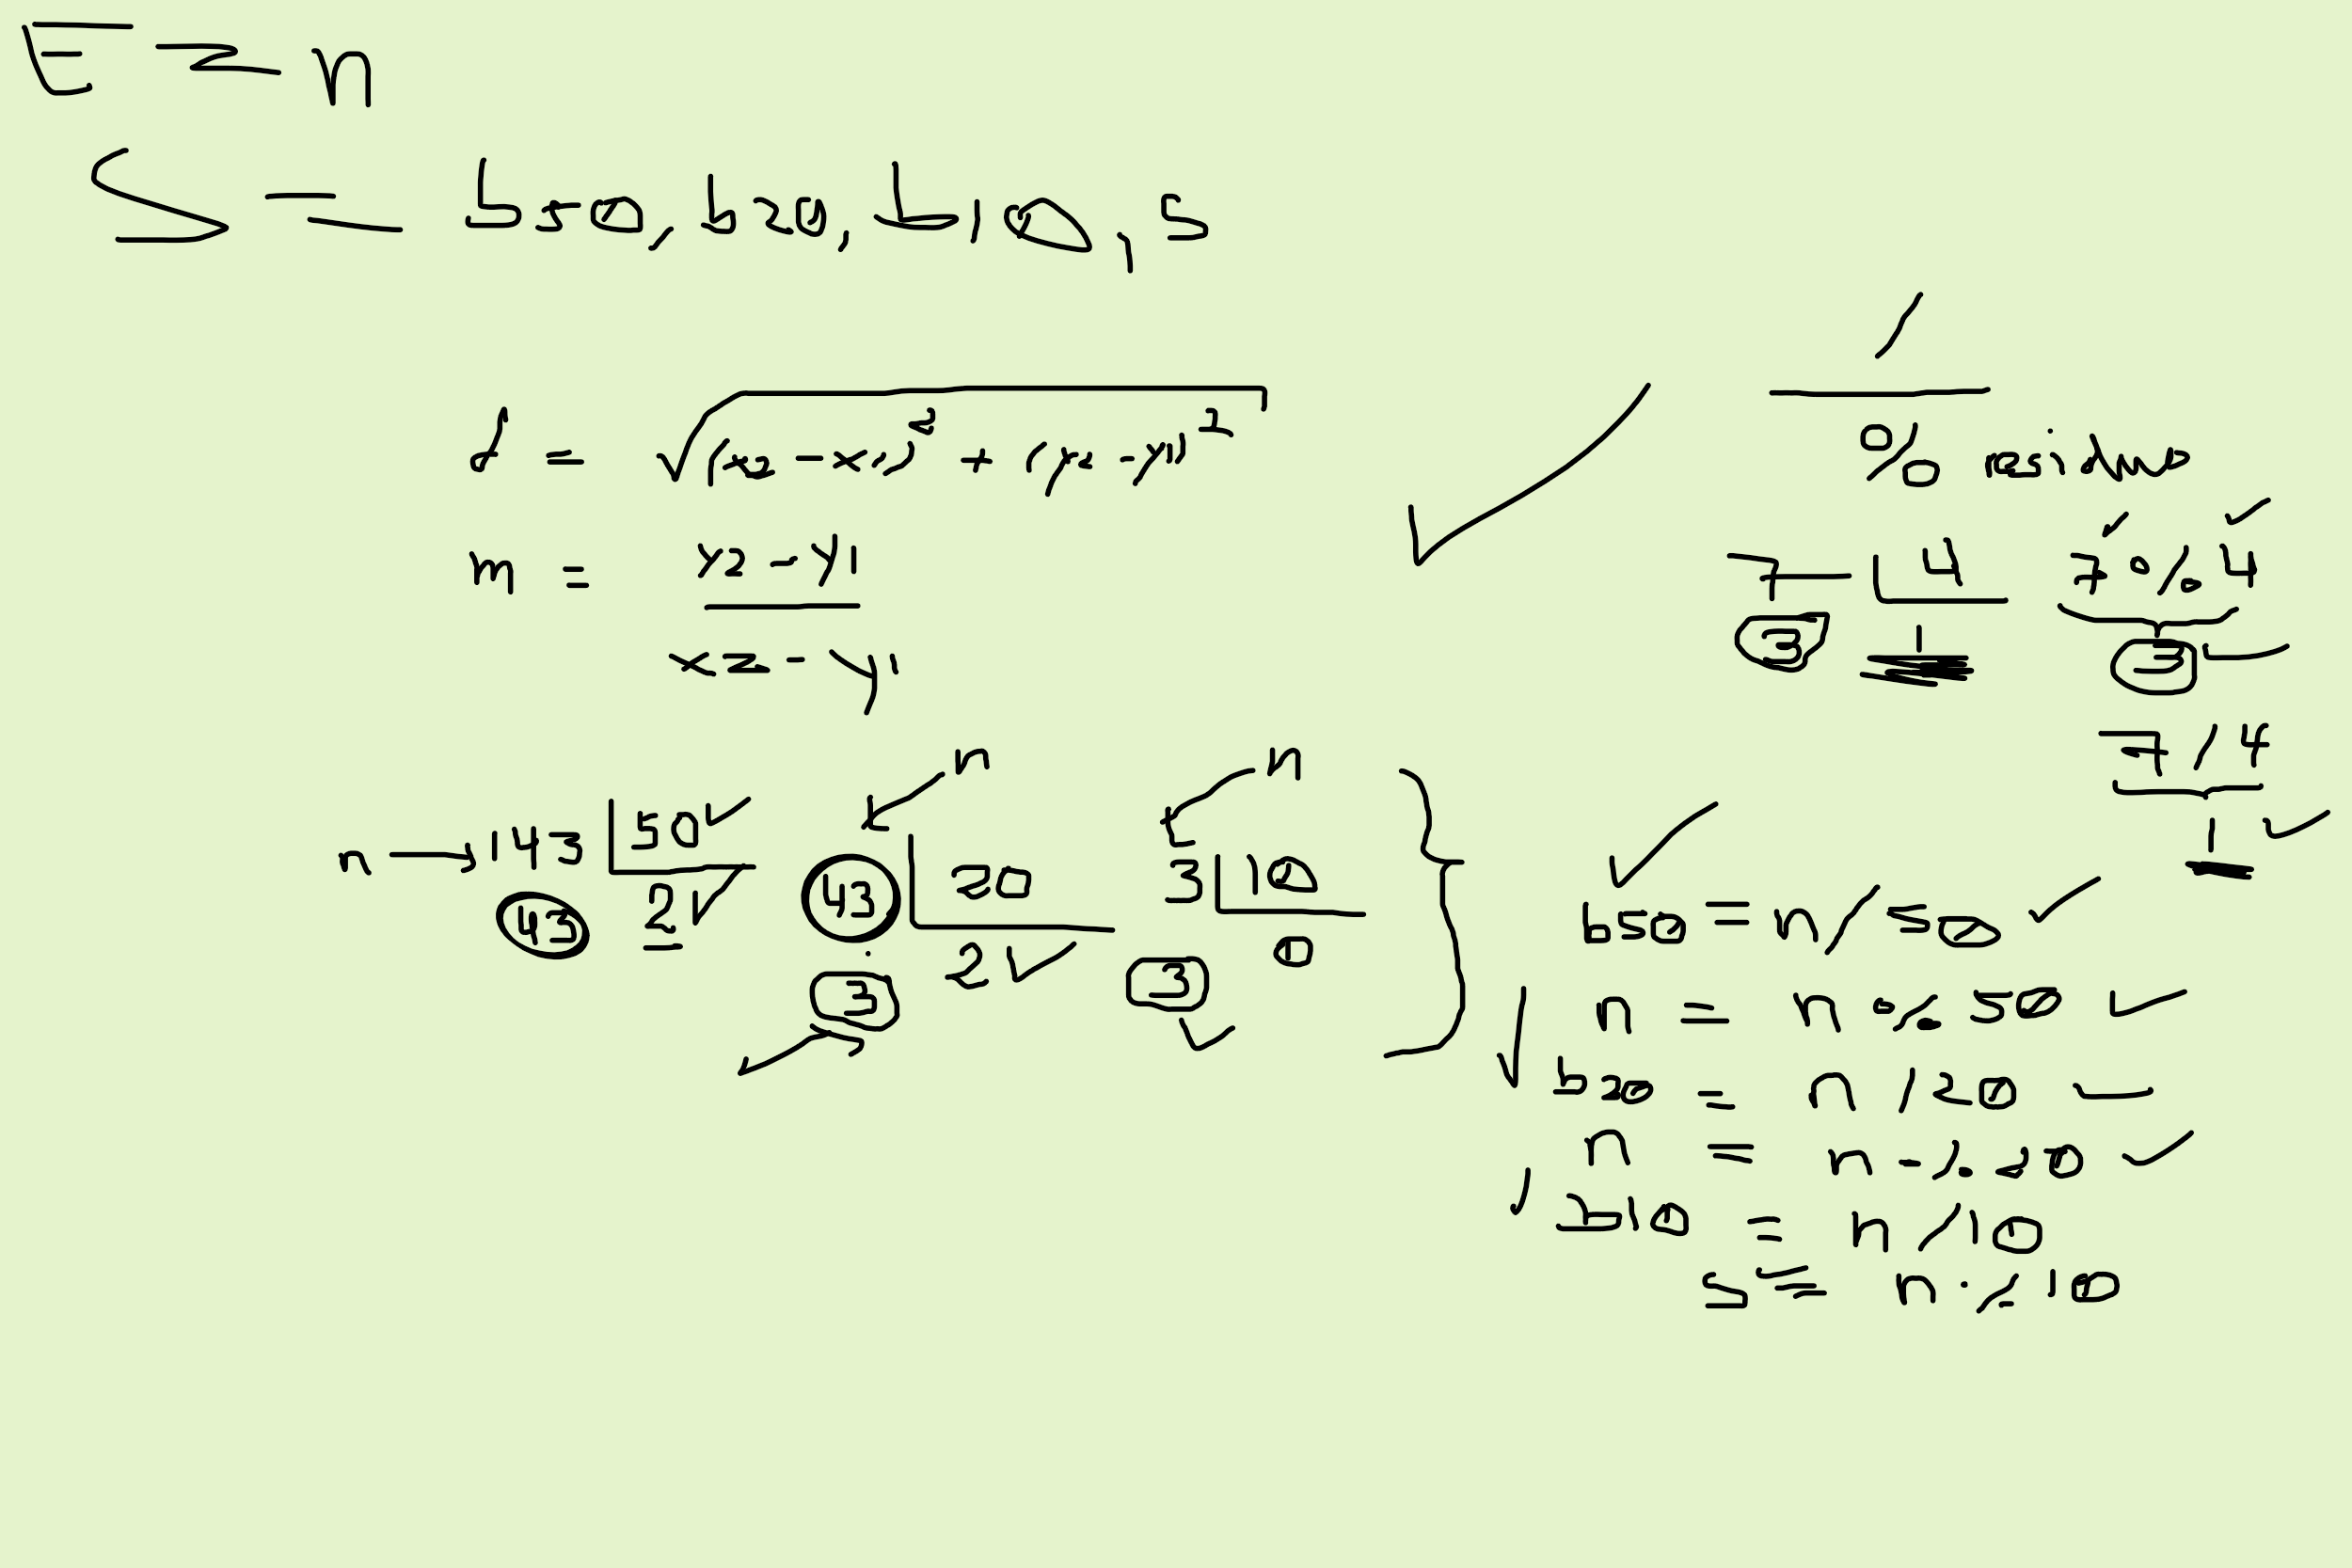 E = n
S = b50, b20, b10, s
/
d = √(x2 - x1)² + (y2 - y1)²
%
m = y2 - y1
x2 - y1
7 4 7 % 4
3 1 3
7 / 4
1
n n
n → 143 50
43 2
43 20
2
3
3 10
0
3
b50 = n / 50
n = n % 50
b20 = n / 20
n = n % 20
b10 = n / 10
s = n % 10